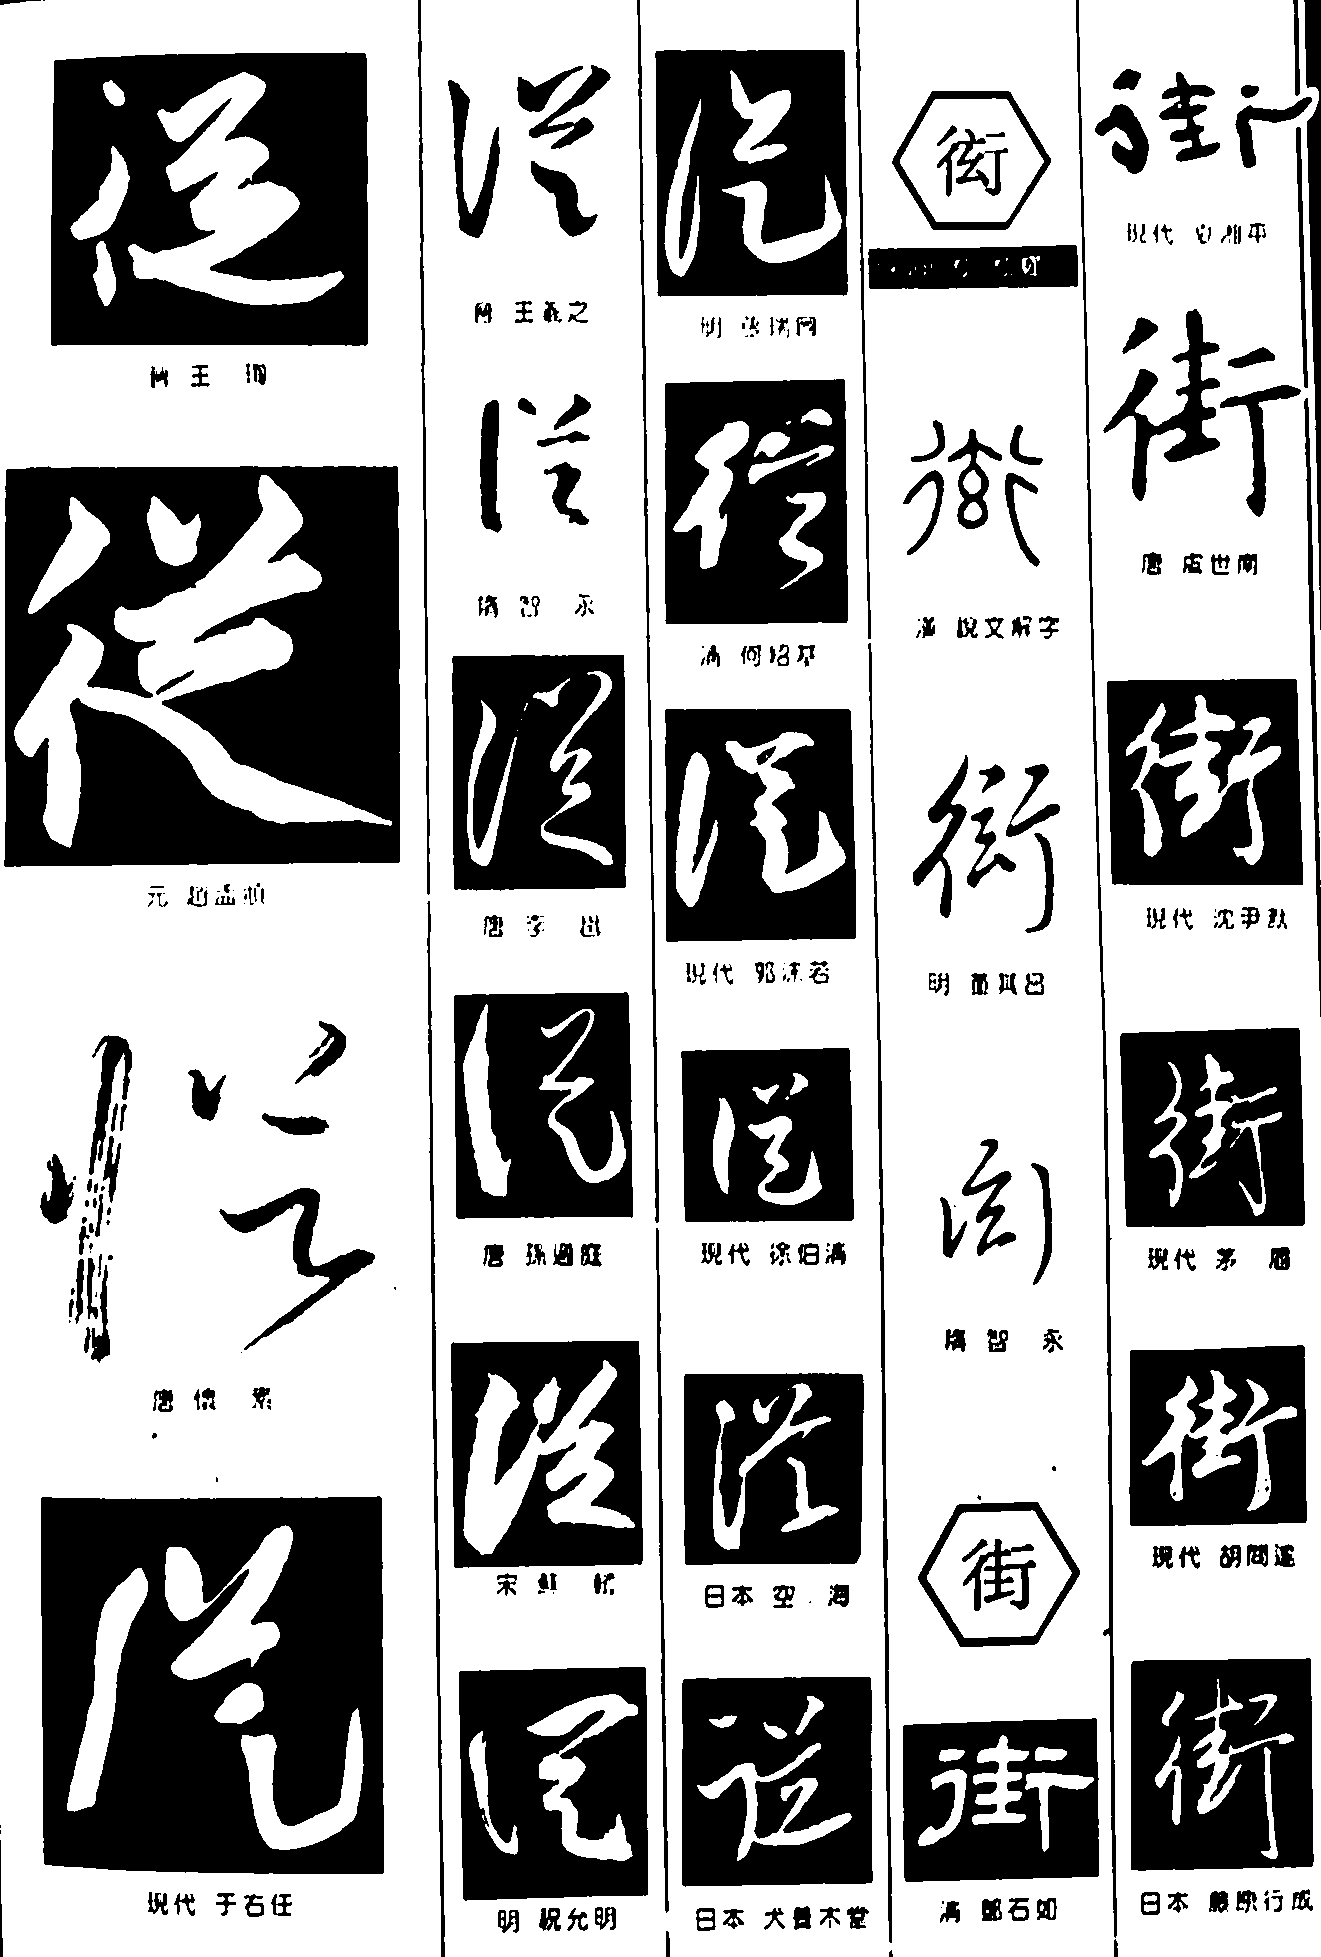 從
晉 王 珣
從
元 趙孟頫
從
唐 懷 素
從
現代 于右任
從
晉 王羲之
從
隋 智 永
從
唐 李 邕
從
唐 孫過庭
從
宋 蘇 軾
從
明 祝允明
從
從
清 何紹基
從
現代 郭沫若
從
現代 徐伯清
從
日本 空 海
從
日本 犬養木堂
衒
衒
漢 說文解字
衒
明 董其昌
衒
隋 智 永
街
街
清 鄧石如
街
現代
街
唐 虞世南
街
現代 沈尹默
街
現代 茅 盾
街
現代 胡問遂
街
日本 藤原行成